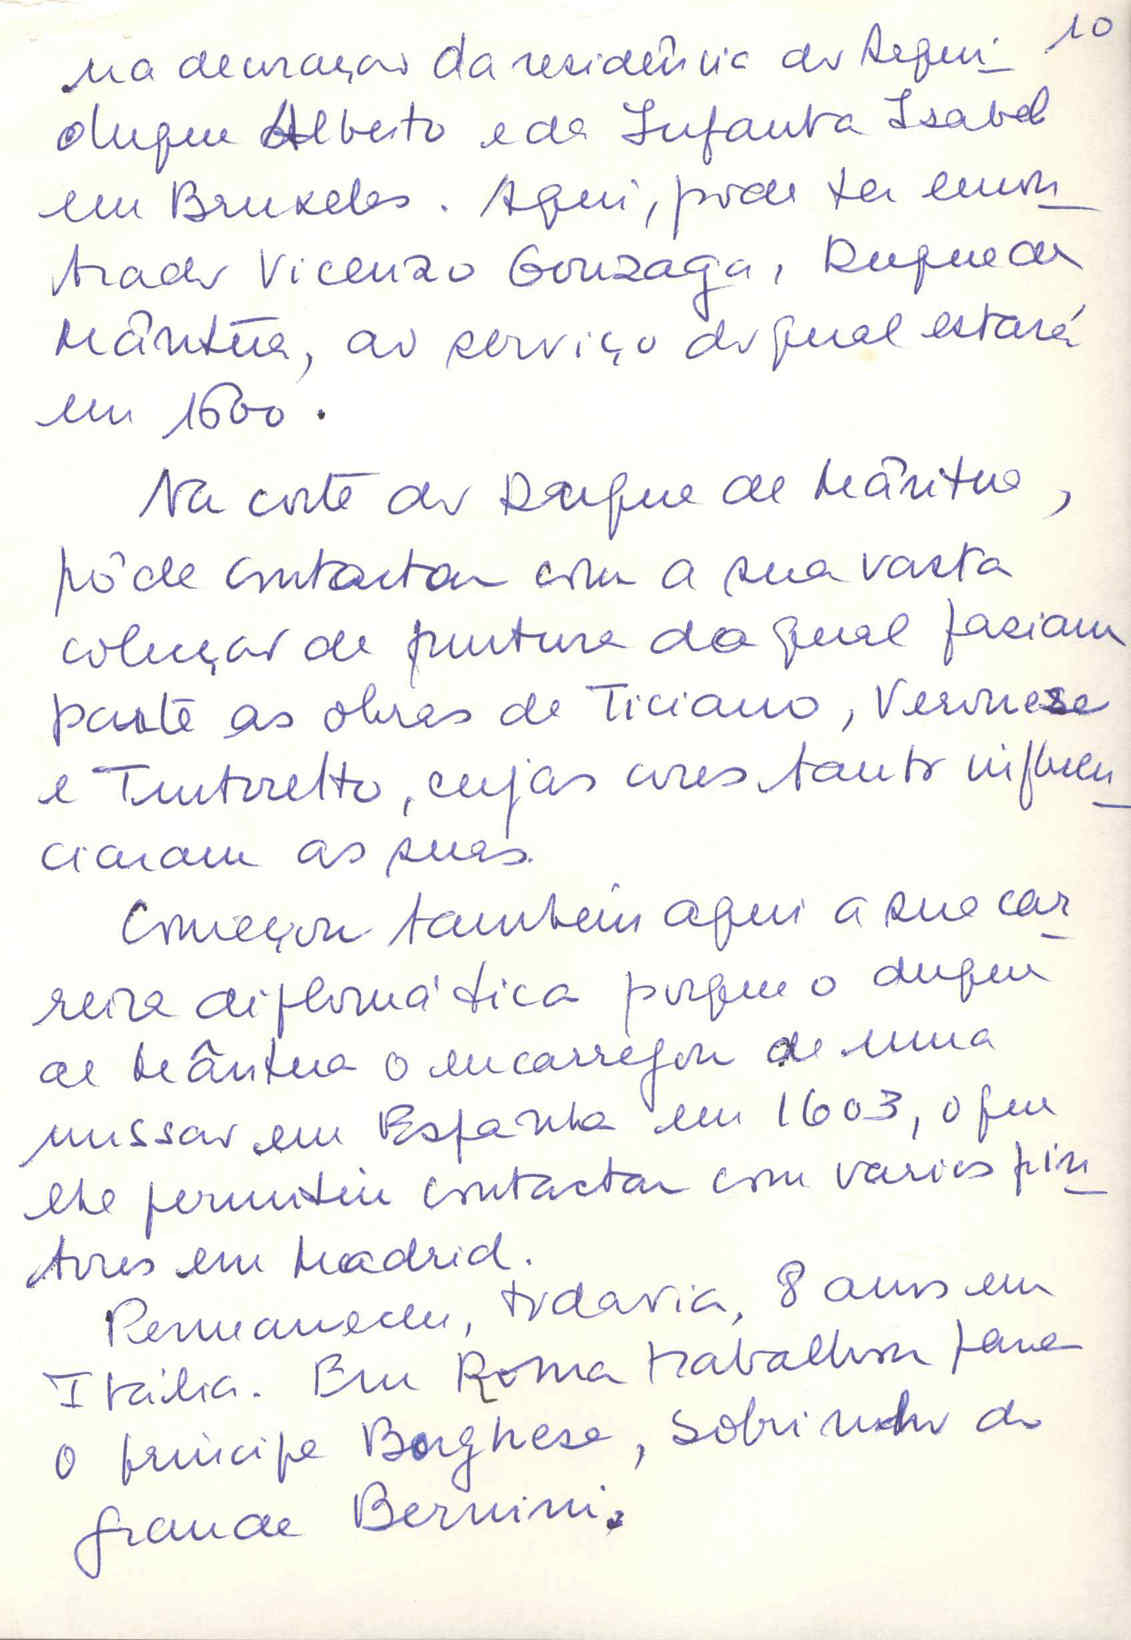 10
na decoração da residência do Arqui-
duque Alberto e da Infanta Isabel
em Bruxelas. Aqui, pode ter encon-
trado Vicenzo Gonzaga, Duque de
Mântua, ao serviço do qual estará
em 1600.
Na corte do Duque de Mântua,
pôde contactar com a sua vasta
colecção de pintura da qual faziam
parte as obras de Ticiano, Veronese
e Tintoretto, cujas cores tanto influen-
ciaram as suas.
Começou também aqui a sua car-
reira diplomática porque o duque
de Mântua o encarregou de uma
missão em Espanha em 1603, o que
lhe permitiu contactar com varios pin-
tores em Madrid.
Permaneceu, todavia, 8 anos em
Itália. Em Roma trabalhou para
o principe Borghese, sobrinho do
grande Bernini.